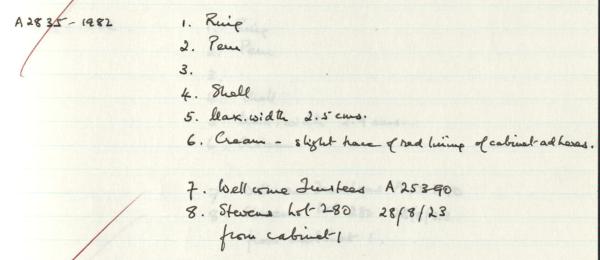 A2835-1982 1. Ring
2. Peru
3.
4. Shell
5. Max. width 2.5 cms.
6. Cream - slight trace of red lining of cabinet adheres.
7. Wellcome Trustees A25390
8. Stevens Lot 280 28/8/23
from cabinet 1